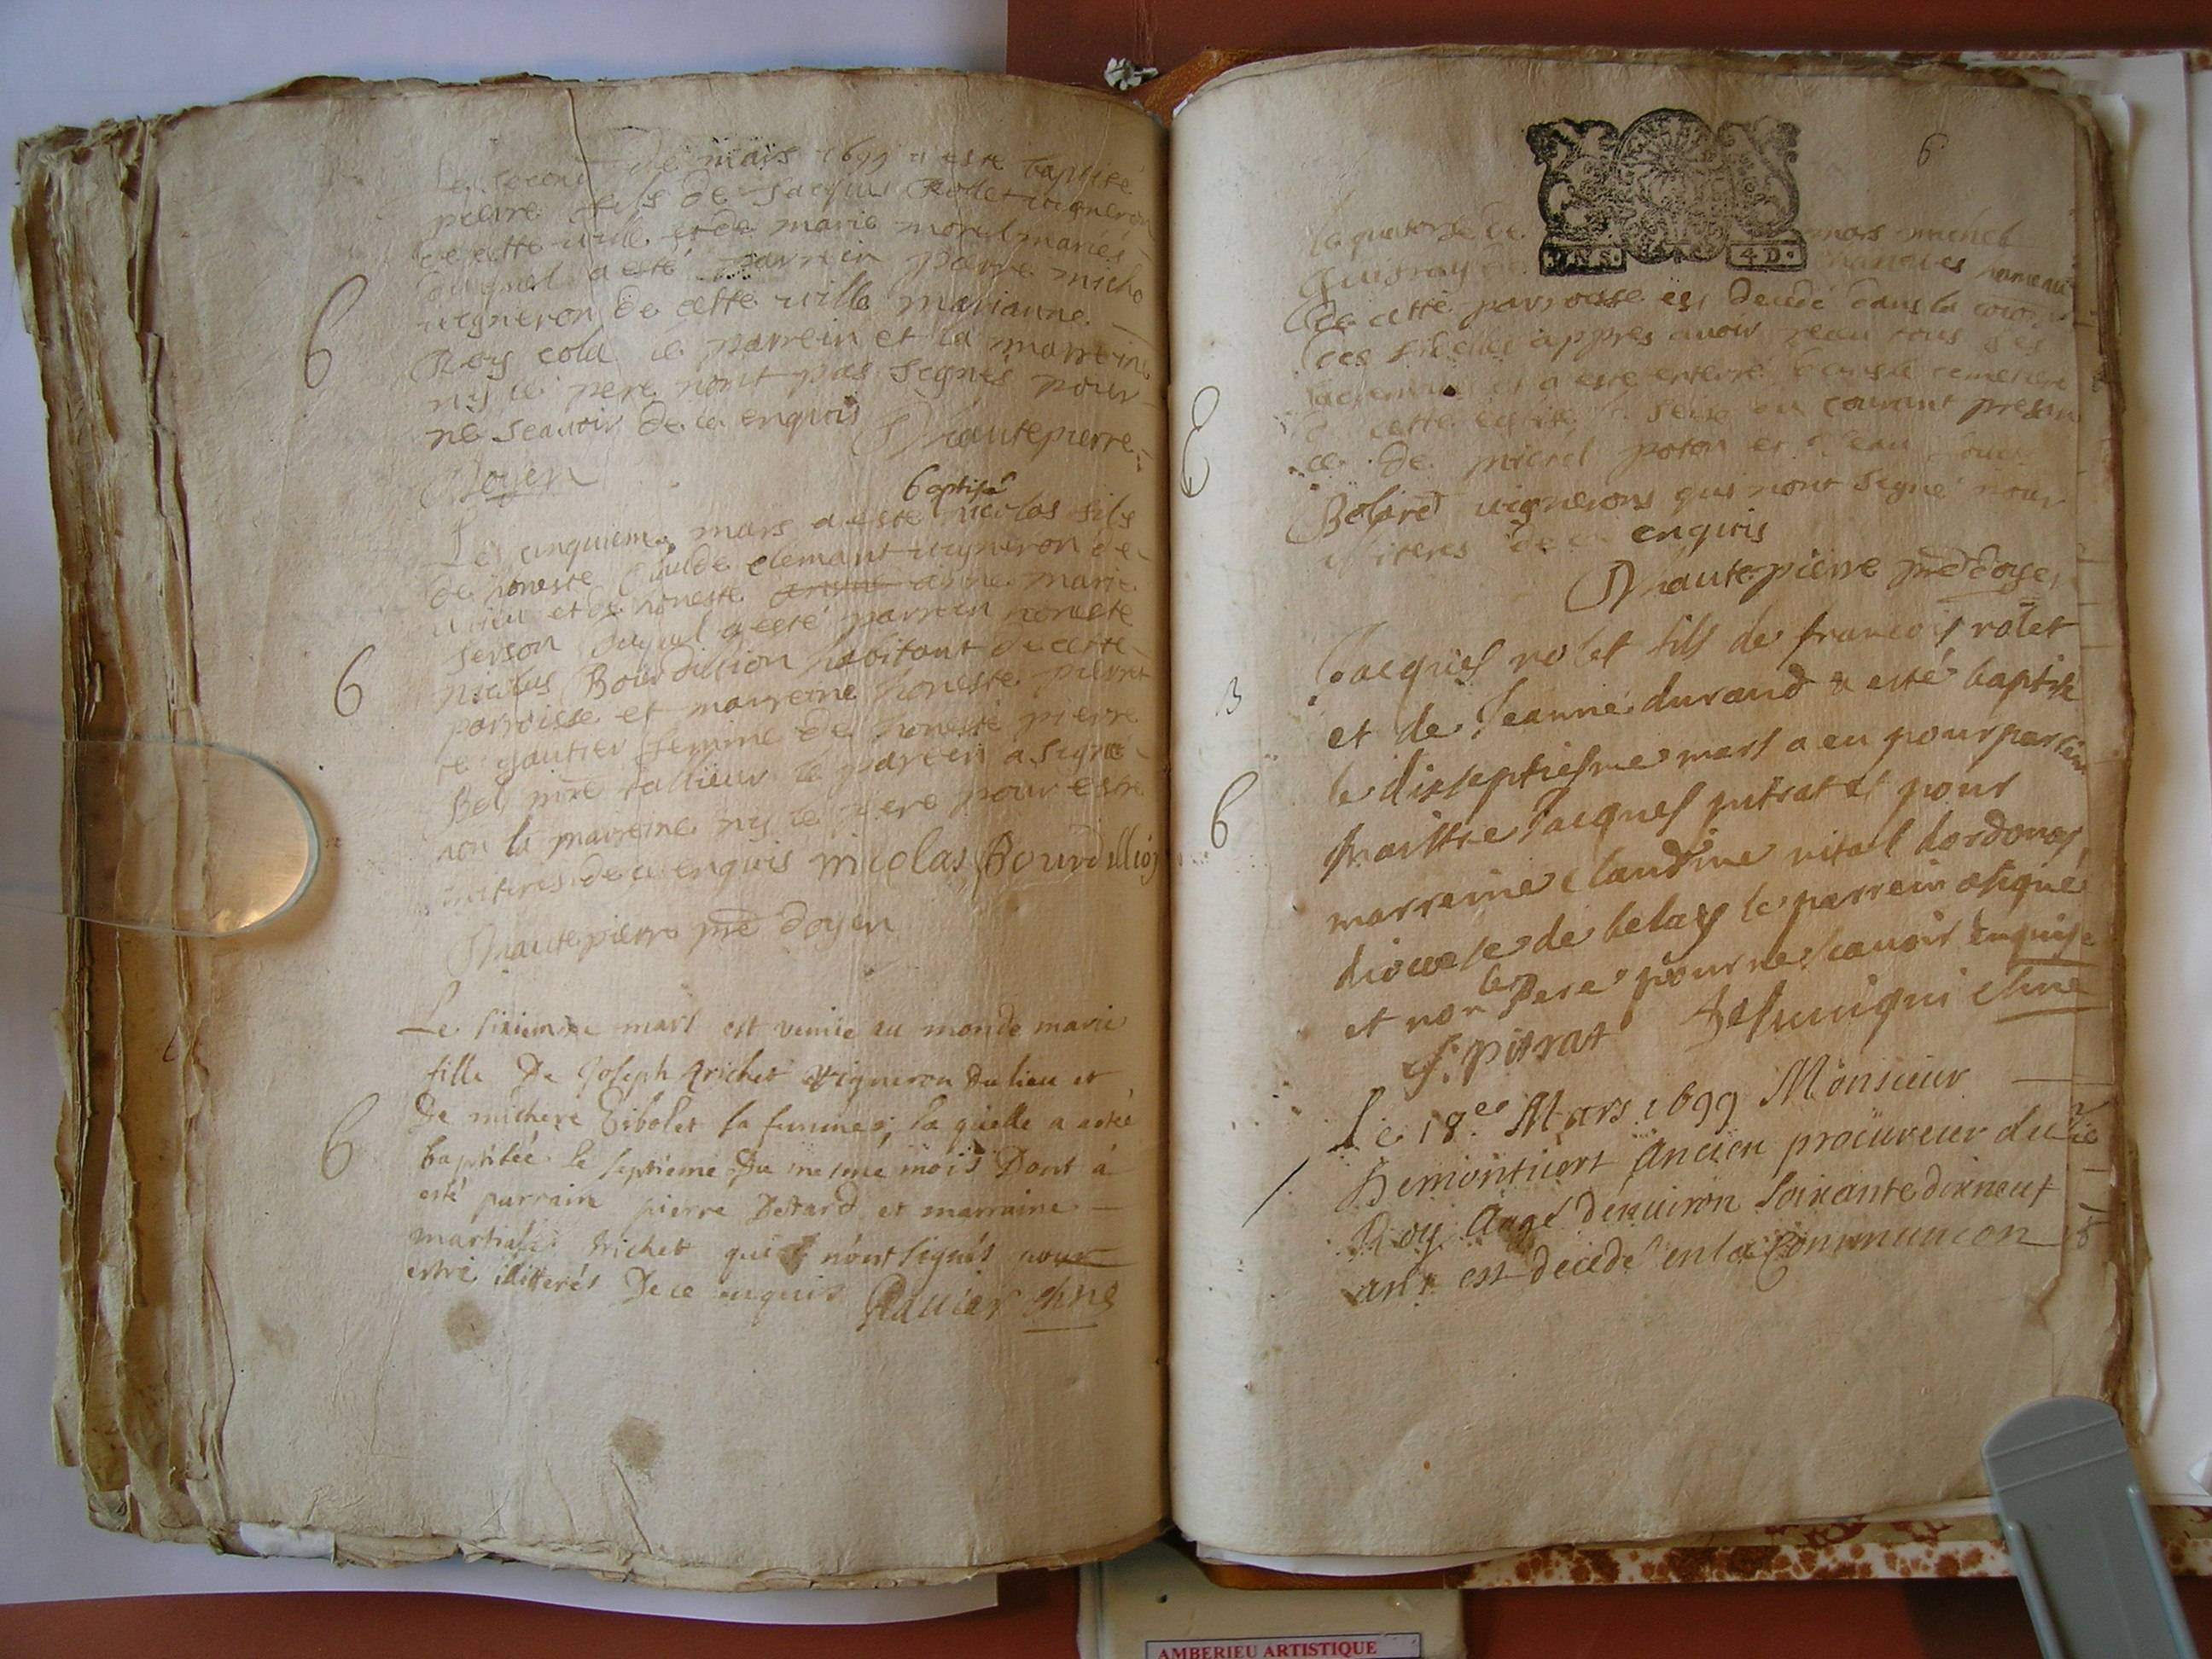 de mars 1699 a este baptisé
pierre fils de Jacque Rolet vigneron
de cette ville et de marie morel mariés
duquel a esté parrein pierre micho
vigneron de cette ville marianne
Rey cola le parrein et la marreine
ny le pere nont pas Segnés pour
ne Scavoir de ce enquis Dhautepierre
Doyen
baptisé
Le cinquieme mars a este nicolas fils
de honeste Claude clemant vigneron de
lieu et de honeste anne marie
serson duquel a esté parrein honeste
nicolas Bourdillion habitant de cette
parroisse et marreine honeste pierret
te gautier femme de honeste pierre
Bel mre tallieur le parrein a Signé
non la marreine ny le pere pour estre
illiteres de ce enquis nicolas Bourdillion
Dhautepierre pre doyen
6
6
Le sixiesme mars est venüe au monde marie
fille De Joseph trichet vigneron du lieu et
De michere Tibolet sa femme, la quelle a esté
baptisée le septieme du mesme mois Dont à
esté parrain pierre Betard et marraine
martiale trichet qui n'ont signés pour
estre illiterés De ce enquis Ravier chne
6
6
4 D.
le quatorze de mars michel
de cette parroisse est decedé dans la
des fidelles appres avoir receu tous ses
sacremens et a esté enterré dans le cemetiere
de cette eglise le seize du courant presan
ce de michel poton et
Bolore vignerons qui nont Segné pour
illiteres de ce enquis
Dhautepierre pre doyen
E
Jacques rolet fils de francois rolet
et de Jeanne durand a esté baptisé
le disseptiesme mars a eu pour parrein
maistre Jacques pitrat et pour
marreine claudine vital dordonas
diocese de belay le parrein a signé
et non le Pere pour ne scavoir enquis
J. pitrat chne
B
6
Le 18.e Mars 1699 Monsieur
Demonticort Ancien procureur du
Roy Aagé denuiron Soixante dixneuf
ans est decedé en la Communion
AMBERIEU ARTISTIQUE